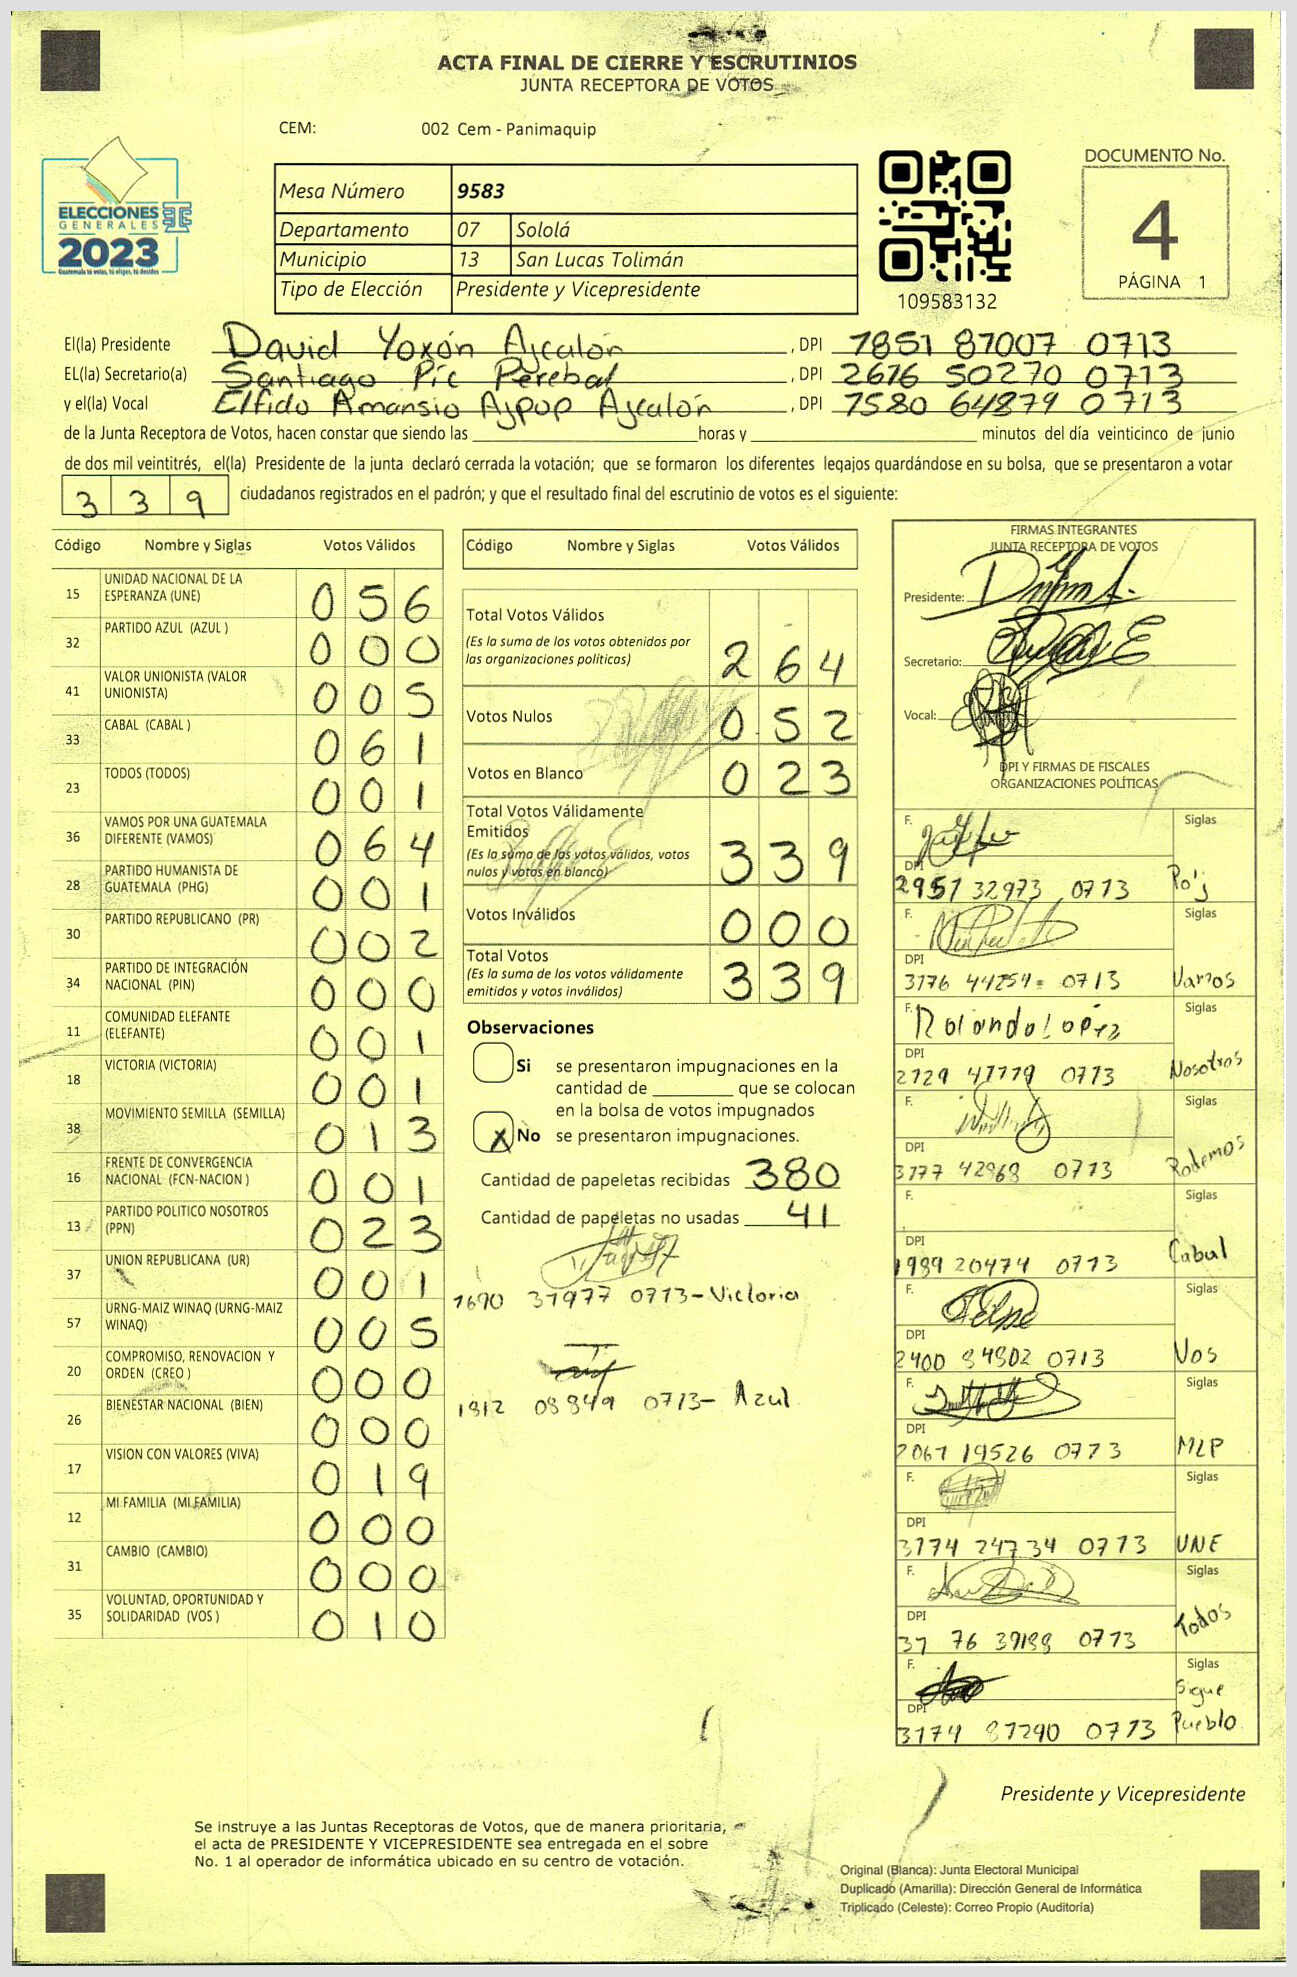 ACTA FINAL DE CIERRE Y ESCRUTINIOS
JUNTA RECEPTORA DE VOTOS
CEM: 002 Cem - Panimaquip
ELECCIONES
GENERALES
2023
Guatemala tú votas, tú eliges, tú decides
Mesa Número 9583
Departamento 07 Sololá
Municipio 13 San Lucas Tolimán
Tipo de Elección Presidente y Vicepresidente
109583132
DOCUMENTO No.
4
PÁGINA 1
El(la) Presidente David Yoxón Ajcalón , DPI 7851 87007 0713
EL(la) Secretario(a) Santiago Pic Perebal , DPI 2676 50270 0713
y el(la) Vocal Elfido Amansio Ajpop Ajcalón , DPI 7580 64879 0713
de la Junta Receptora de Votos, hacen constar que siendo las horas y minutos del día veinticinco de junio
de dos mil veintitrés, el(la) Presidente de la junta declaró cerrada la votación; que se formaron los diferentes legajos guardándose en su bolsa, que se presentaron a votar
339 ciudadanos registrados en el padrón; y que el resultado final del escrutinio de votos es el siguiente:
Código Nombre y Siglas Votos Válidos
15 UNIDAD NACIONAL DE LA ESPERANZA (UNE) 056
32 PARTIDO AZUL (AZUL ) 000
41 VALOR UNIONISTA (VALOR UNIONISTA) 005
33 CABAL (CABAL ) 061
23 TODOS (TODOS) 001
36 VAMOS POR UNA GUATEMALA DIFERENTE (VAMOS) 064
28 PARTIDO HUMANISTA DE GUATEMALA (PHG) 001
30 PARTIDO REPUBLICANO (PR) 002
34 PARTIDO DE INTEGRACIÓN NACIONAL (PIN) 000
11 COMUNIDAD ELEFANTE (ELEFANTE) 001
18 VICTORIA (VICTORIA) 001
38 MOVIMIENTO SEMILLA (SEMILLA) 013
16 FRENTE DE CONVERGENCIA NACIONAL (FCN-NACION ) 001
13 PARTIDO POLITICO NOSOTROS (PPN) 023
37 UNION REPUBLICANA (UR) 001
57 URNG-MAIZ WINAQ (URNG-MAIZ WINAQ) 005
20 COMPROMISO, RENOVACION Y ORDEN (CREO ) 000
26 BIENESTAR NACIONAL (BIEN) 000
17 VISION CON VALORES (VIVA) 019
12 MI FAMILIA (MI FAMILIA) 000
31 CAMBIO (CAMBIO) 000
35 VOLUNTAD, OPORTUNIDAD Y SOLIDARIDAD (VOS ) 010
Código Nombre y Siglas Votos Válidos
Total Votos Válidos
(Es la suma de los votos obtenidos por
las organizaciones políticas) 264
Votos Nulos 052
Votos en Blanco 023
Total Votos Válidamente
Emitidos
(Es la suma de los votos válidos, votos
nulos y votos en blanco) 339
Votos Inválidos 000
Total Votos
(Es la suma de los votos válidamente
emitidos y votos inválidos) 339
Observaciones
Si se presentaron impugnaciones en la
cantidad de que se colocan
en la bolsa de votos impugnados
X No se presentaron impugnaciones.
Cantidad de papeletas recibidas 380
Cantidad de papeletas no usadas 41
1690 37977 0713-Victoria
1912 08849 0713- Azul
FIRMAS INTEGRANTES
JUNTA RECEPTORA DE VOTOS
Presidente:
Secretario:
Vocal:
DPI Y FIRMAS DE FISCALES
ORGANIZACIONES POLÍTICAS
F. Siglas
DPI
2957 32973 0713 Po'j
F. Siglas
DPI
3176 44254 0713 Vamos
F. Rolando Lopez Siglas
DPI
2729 47779 0713 Nosotros
F. Siglas
DPI
3177 42868 0713 Podemos
F. Siglas
DPI
1989 20474 0713 Cabal
F. Felipe Siglas
DPI
2400 84802 0713 Vos
F. Siglas
DPI
2067 19526 0773 MLP
F. Siglas
DPI
3174 24734 0713 UNE
F. Siglas
DPI
31 76 39188 0713 Todos
F. Siglas
DPI
3174 87290 0773 Sigue Pueblo
Presidente y Vicepresidente
Se instruye a las Juntas Receptoras de Votos, que de manera prioritaria,
el acta de PRESIDENTE Y VICEPRESIDENTE sea entregada en el sobre
No. 1 al operador de informática ubicado en su centro de votación.
Original (Blanca): Junta Electoral Municipal
Duplicado (Amarilla): Dirección General de Informática
Triplicado (Celeste): Correo Propio (Auditoría)